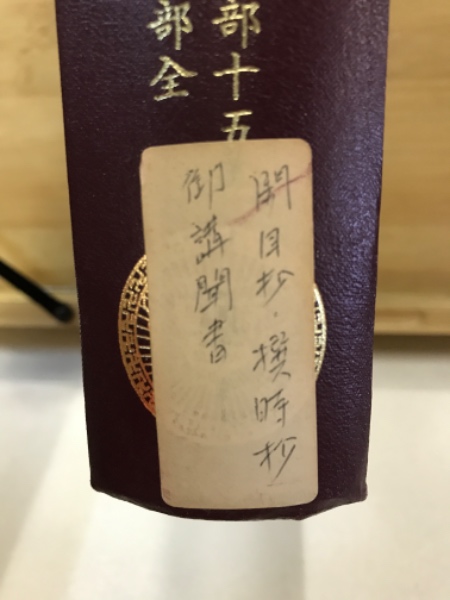 部十五
部全
開目抄・撰時抄
御講聞書